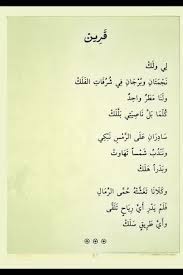 قَرِين
لِي وَلَكْ
نَجْمَتَانِ وَبُرْجَانِ فِي شُرُفَاتِ الفَلَكْ
وَلَنَا مَطَرٌ وَاحِدٌ
كُلَّمَا بَلَّ نَاصِيَتِي بَلَّلَكْ
سَادِرَانِ عَلَى الرَّمْسِ نَبْكِي
وَنَنْدُبُ شَمْساً تَهَاوَتْ
وَبَدْراً هَلَكْ
وَكِلَانَا تَغَشَّتْهُ حُمَّى الرِّمَالِ
فَلَمْ يَدْرِ أَيَّ رِيَاحٍ تَلَقَّى
وَأَيَّ طَرِيقٍ سَلَكْ